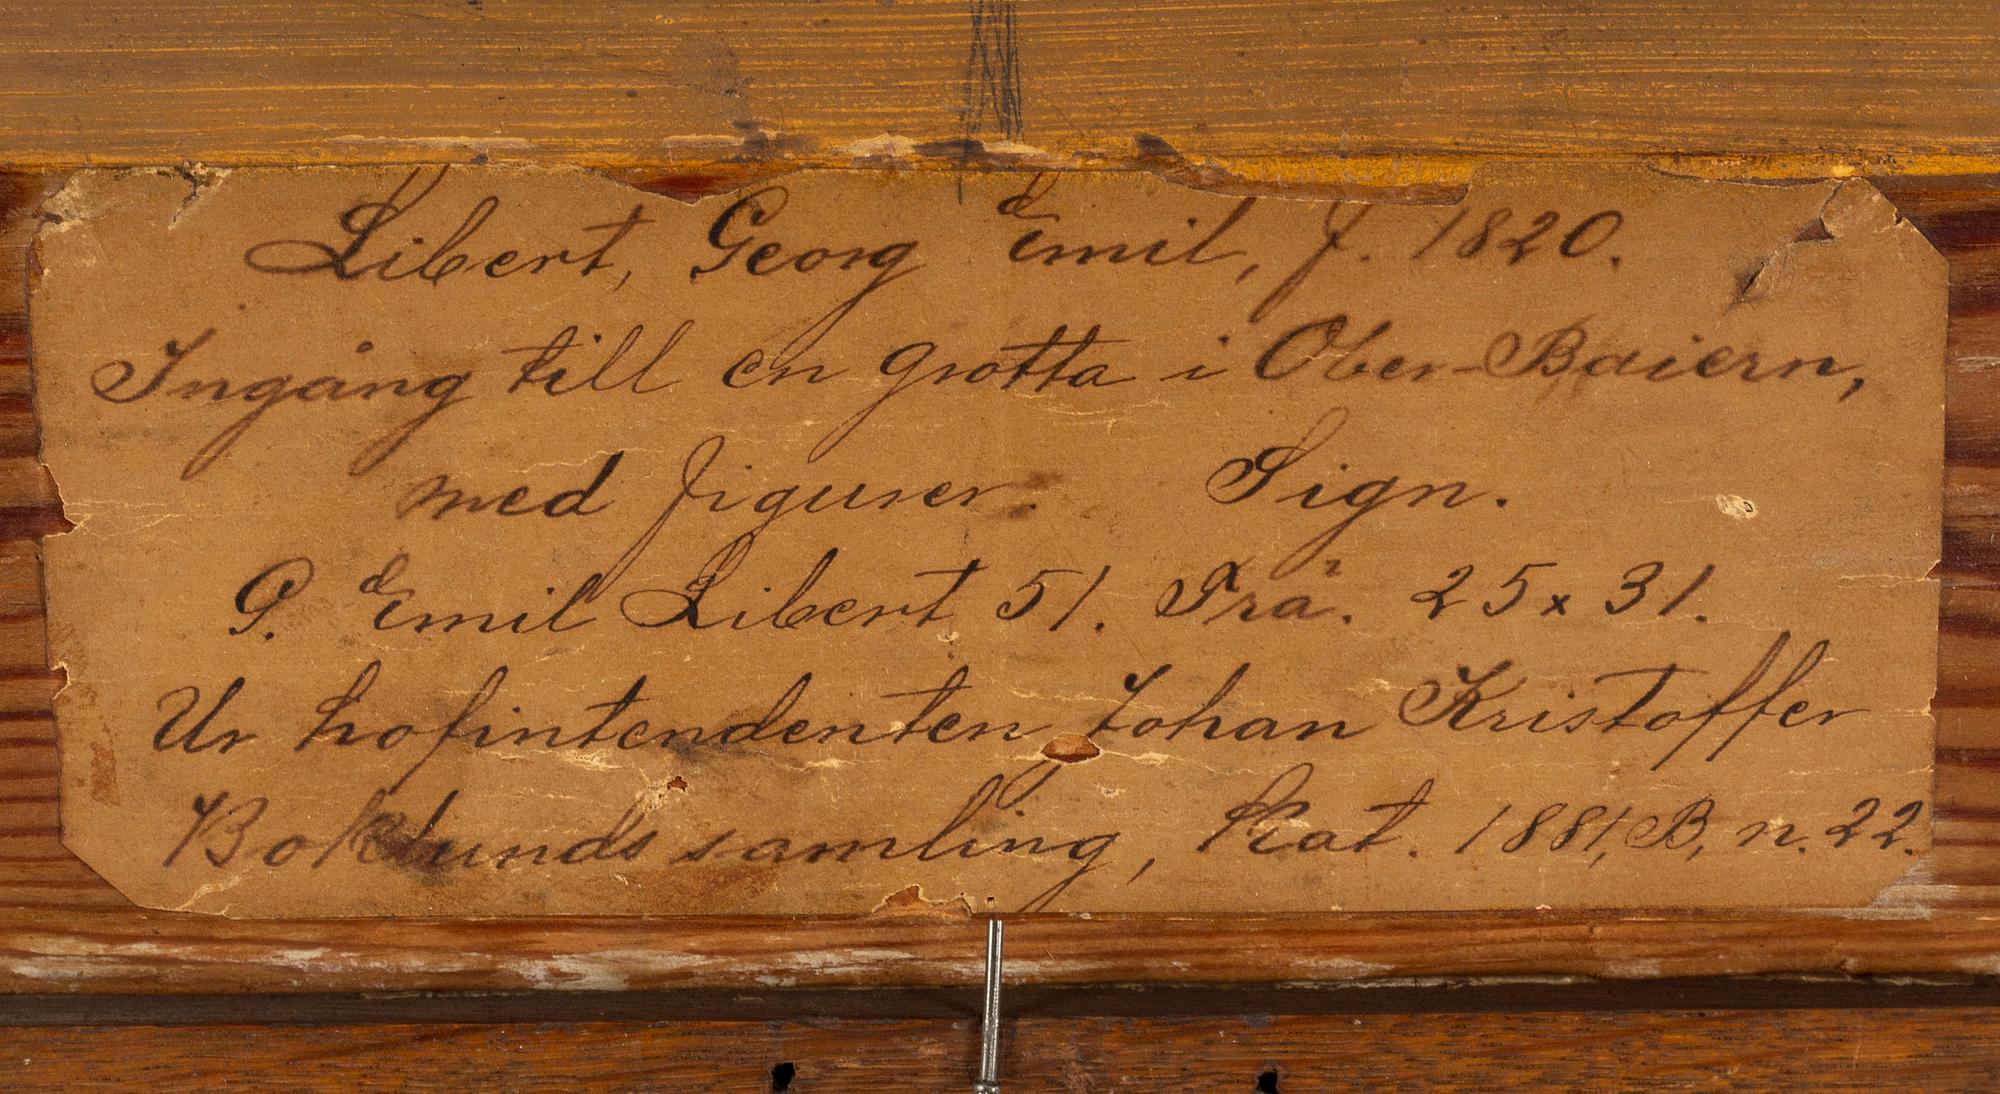 Libert, Georg Emil, f. 1820.
Ingång till en grotta i Ober-Baiern,
med figurer. Sign.
G. Emil Libert 51. Trä. 25 x 31.
Ur hofintendenten Johan Kristoffer
Boklunds samling, Kat. 1881, B, n. 22.